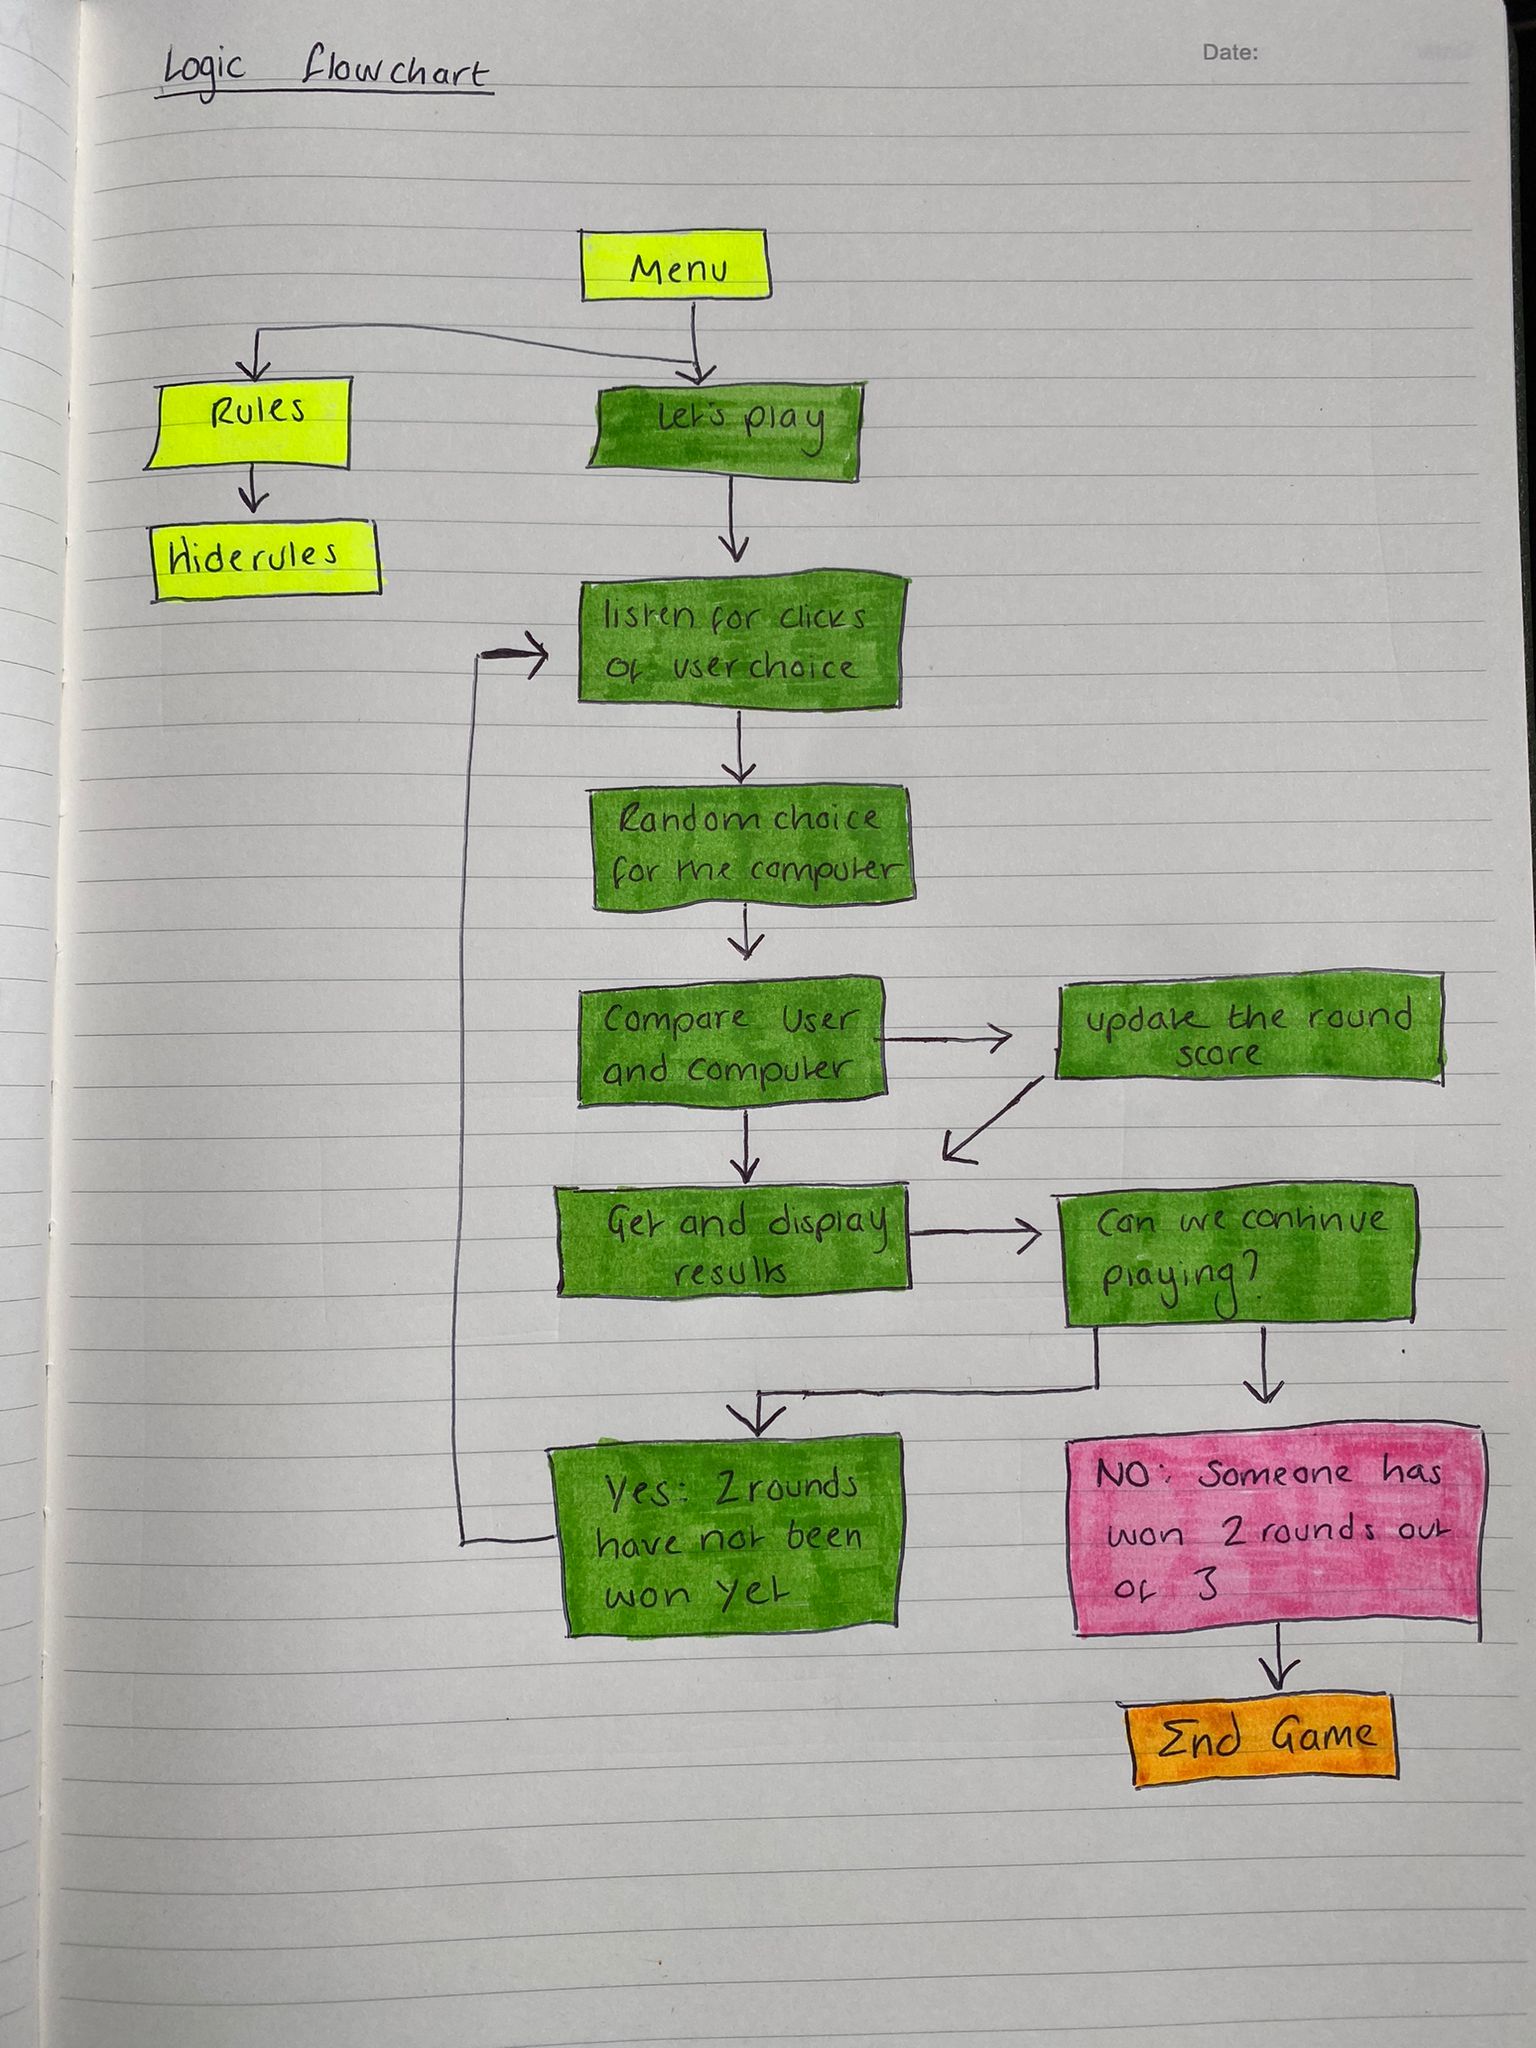 Logic flowchart
Date:
Menu
Rules
Let's play
Hide rules
listen for clicks
of user choice
Random choice
for the computer
Compare User
and computer
update the round
score
Get and display
results
Can we continue
playing?
Yes: 2 rounds
have not been
won yet
NO: Someone has
won 2 rounds out
of 3
End Game